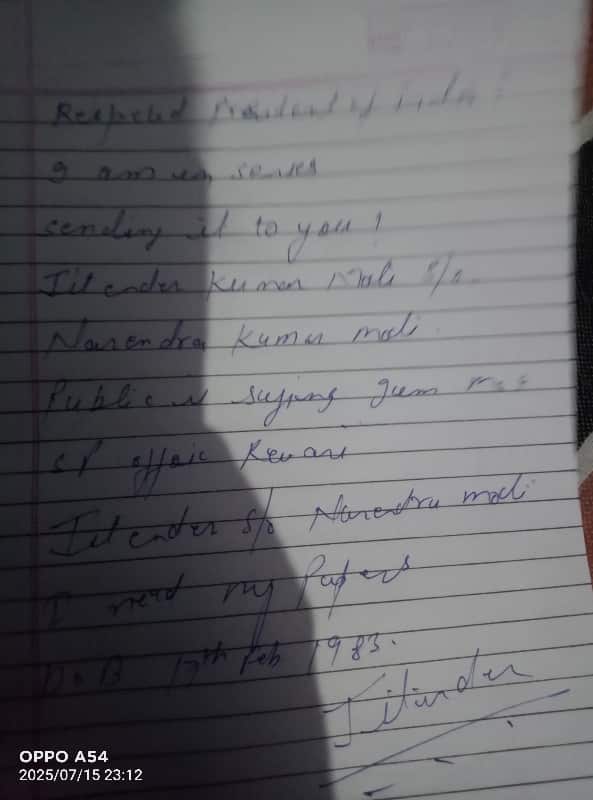 Respected President of India
I am in senses
sending it to you !
Jitender Kumar Modi S/o
Narendra Kumar modi.
Public is sujing gum
SP offaic Rewari
Jitender s/o Narendra modi
I need my Papers
D.O.B 17th Feb 1983.
Jitinder
OPPO A54
2025/07/15 23:12